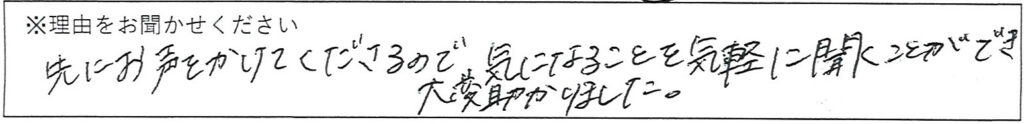 ※理由をお聞かせください
先にお声をかけてくださるので、気になることを気軽に聞くことができ
大変助かりました。